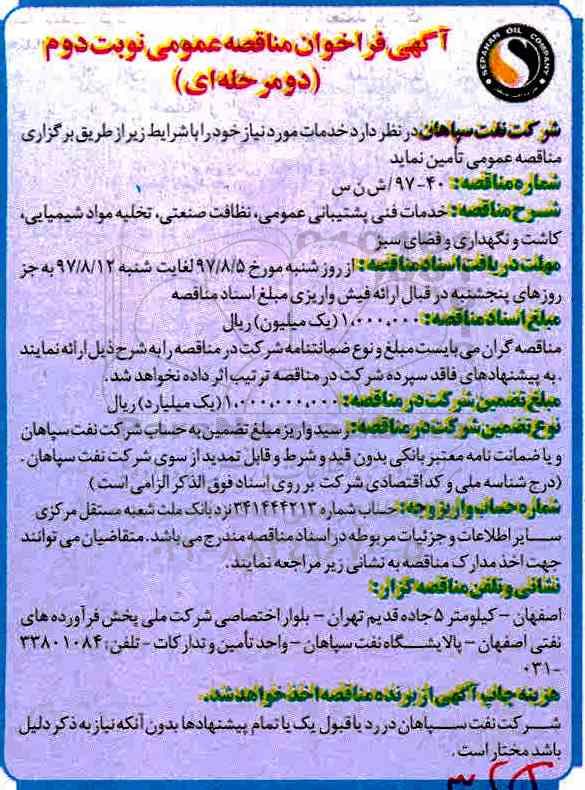 SEPAHAN OIL COMPANY
آگهی فراخوان مناقصه عمومی نوبت دوم
(دو مرحله ای)
شرکت نفت سپاهان در نظر دارد خدمات مورد نیاز خود را با شرایط زیر از طریق برگزاری
مناقصه عمومی تأمین نماید
شماره مناقصه: ۴۰-۹۷/ش ن س
شرح مناقصه: خدمات فنی پشتیبانی عمومی، نظافت صنعتی، تخلیه مواد شیمیایی،
کاشت و نگهداری و فضای سبز
مهلت دریافت اسناد مناقصه: از روز شنبه مورخ ۹۷/۸/۵ لغایت شنبه ۹۷/۸/۱۲ به جز
روزهای پنجشنبه در قبال ارائه فیش واریزی مبلغ اسناد مناقصه
مبلغ اسناد مناقصه: ۱،۰۰۰،۰۰۰ (یک میلیون) ریال
مناقصه گران می بایست مبلغ و نوع ضمانتنامه شرکت در مناقصه را به شرح ذیل ارائه نمایند
. به پیشنهادهای فاقد سپرده شرکت در مناقصه ترتیب اثر داده نخواهد شد.
مبلغ تضمین شرکت در مناقصه: ۱،۰۰۰،۰۰۰،۰۰۰ (یک میلیارد) ریال
نوع تضمین شرکت در مناقصه: رسید واریز مبلغ تضمین به حساب شرکت نفت سپاهان
و یا ضمانت نامه معتبر بانکی بدون قید و شرط و قابل تمدید از سوی شرکت نفت سپاهان .
(درج شناسه ملی و کد اقتصادی شرکت بر روی اسناد فوق الذکر الزامی است )
شماره حساب واریز وجه: حساب شماره ۳۴۱۴۴۴۲۱۳ نزد بانک ملت شعبه مستقل مرکزی
سایر اطلاعات و جزئیات مربوطه در اسناد مناقصه مندرج می باشد. متقاضیان می توانند
جهت اخذ مدارک مناقصه به نشانی زیر مراجعه نمایند.
نشانی و تلفن مناقصه گزار:
اصفهان – کیلومتر ۵ جاده قدیم تهران – بلوار اختصاصی شرکت ملی پخش فرآورده های
نفتی اصفهان – پالایشگاه نفت سپاهان – واحد تأمین و تدارکات – تلفن: ۳۳۸۰۱۰۸۴
-۰۳۱
هزینه چاپ آگهی از برنده مناقصه اخذ خواهد شد.
شرکت نفت سپاهان در رد یا قبول یک یا تمام پیشنهادها بدون آنکه نیاز به ذکر دلیل
باشد مختار است.